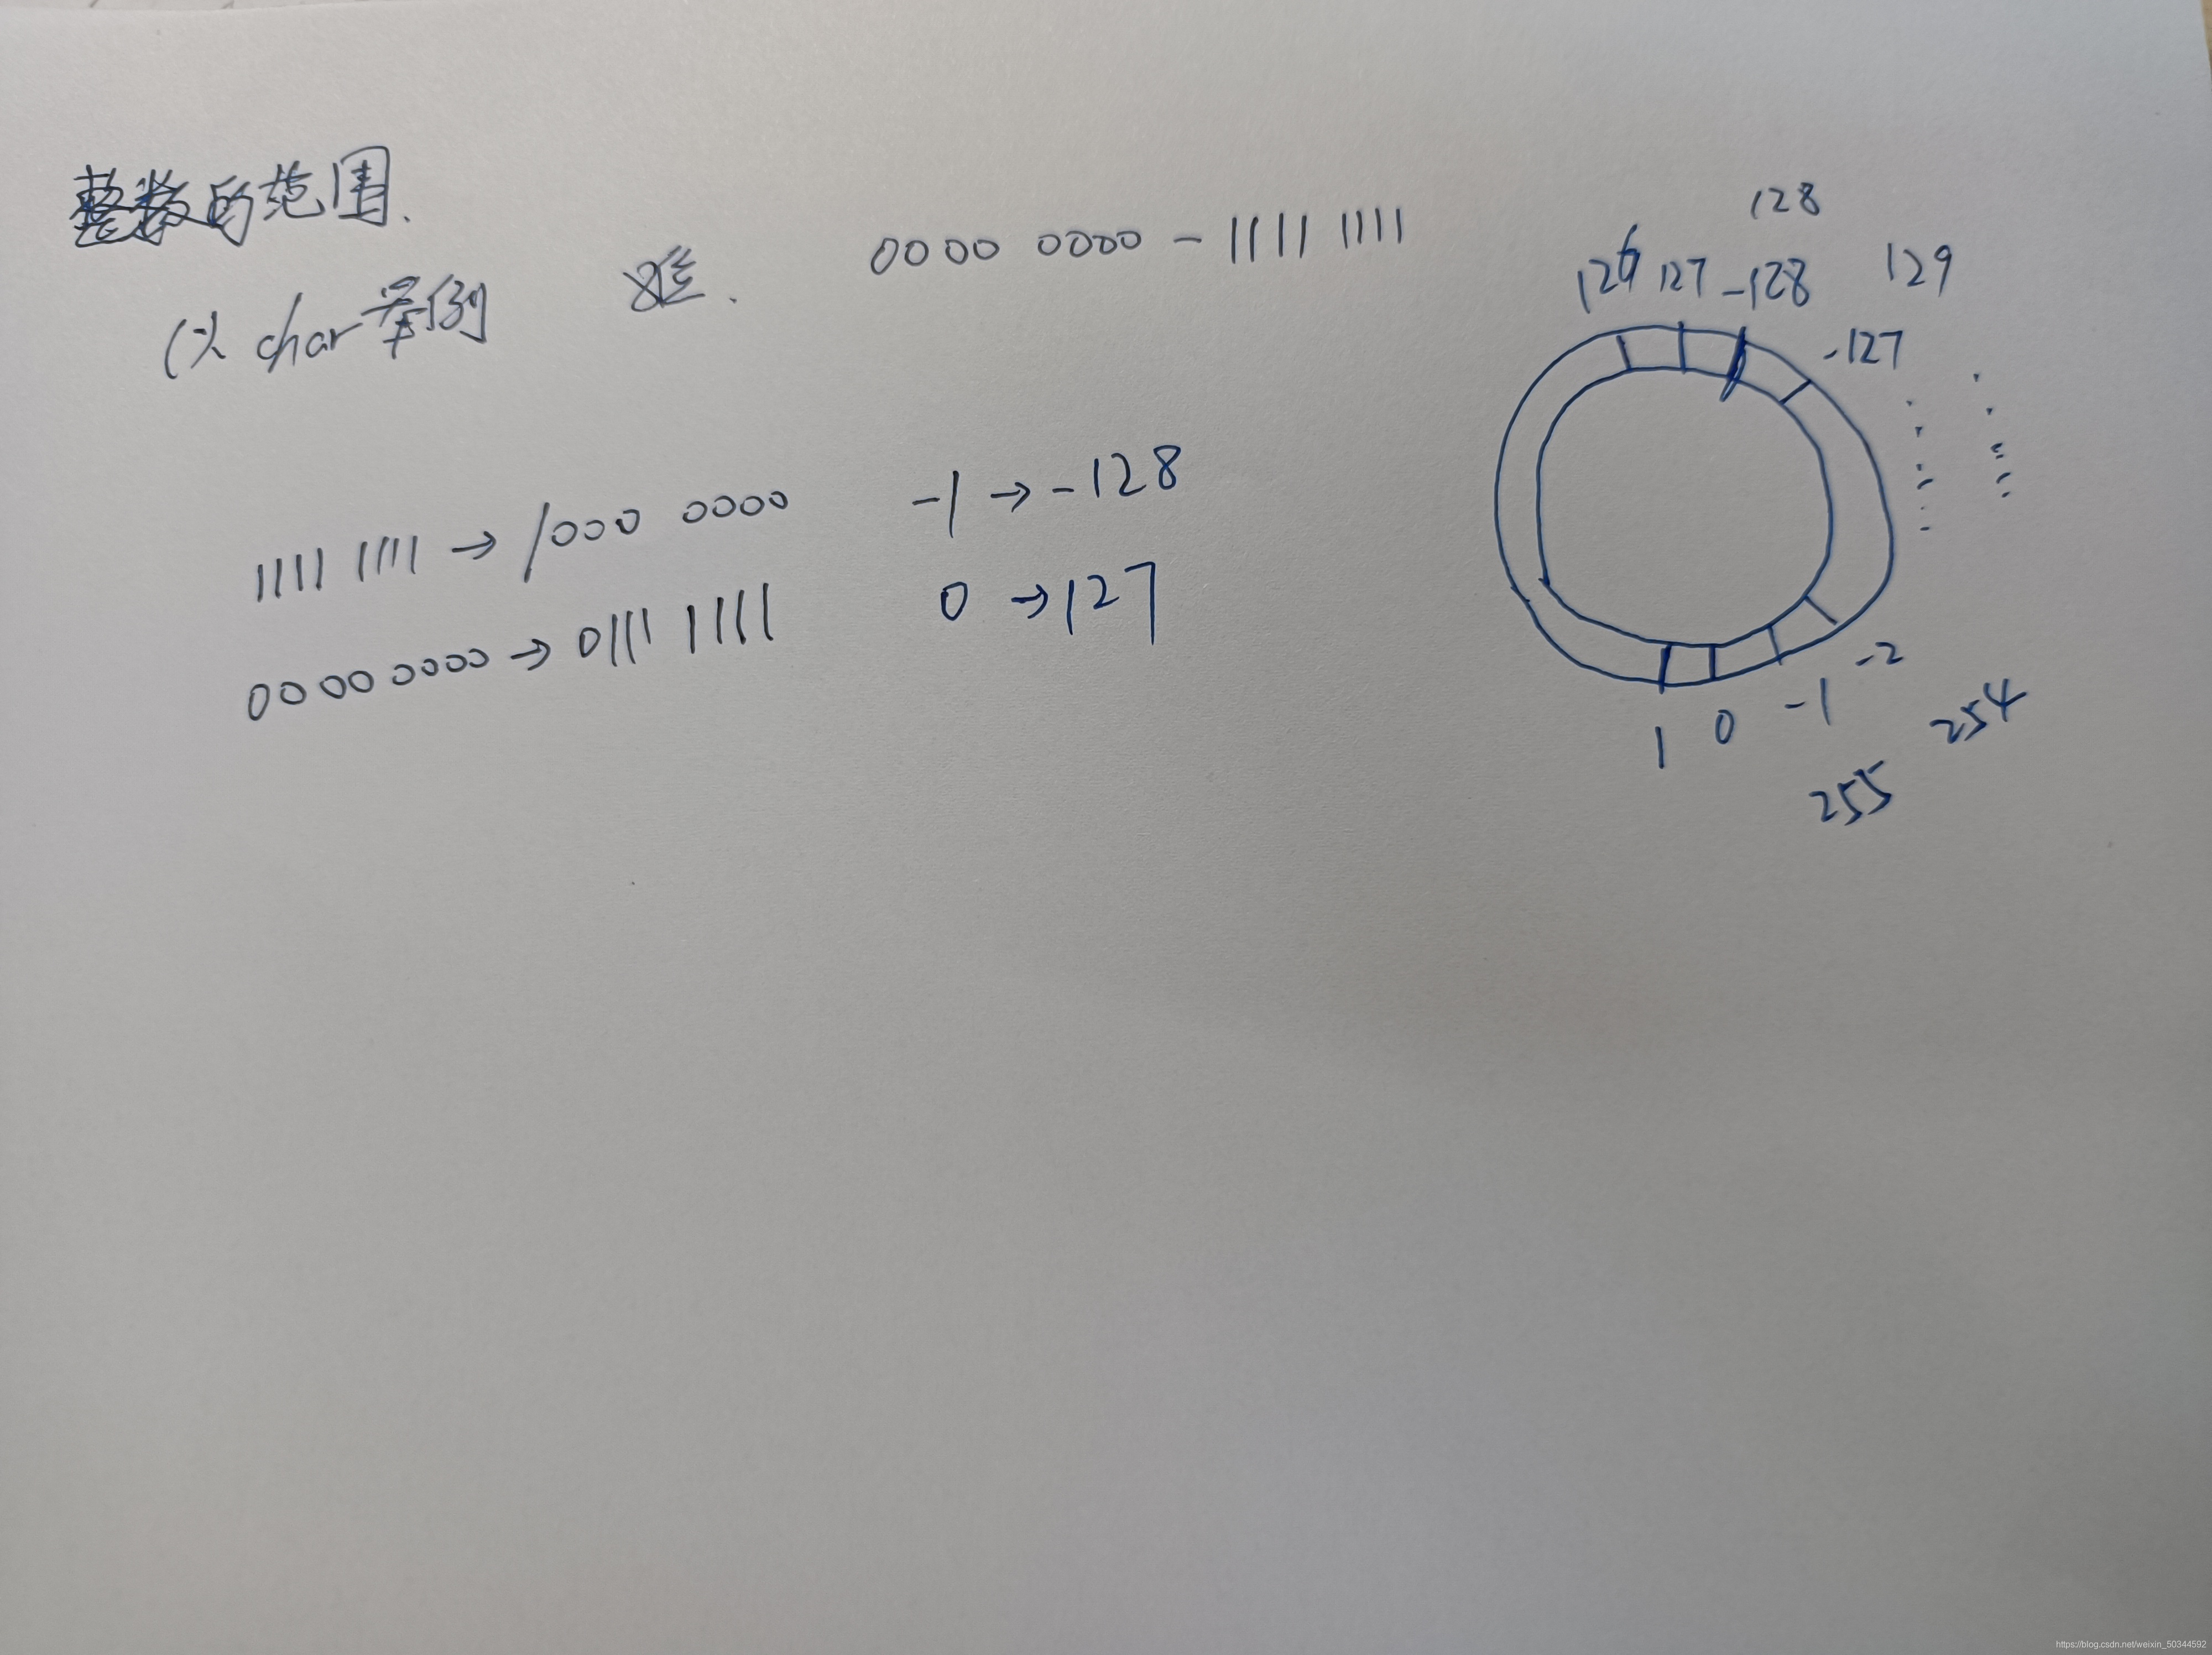 整数的范围.
以 char举例 难. 0000 0000 - 1111 1111
1111 1111 → 1000 0000 -1 → -128
0000 0000 → 0111 1111 0 → 127
128
126 127 -128 129
-127
1 0 -1 -2
255 254
https://blog.csdn.net/weixin_50344592